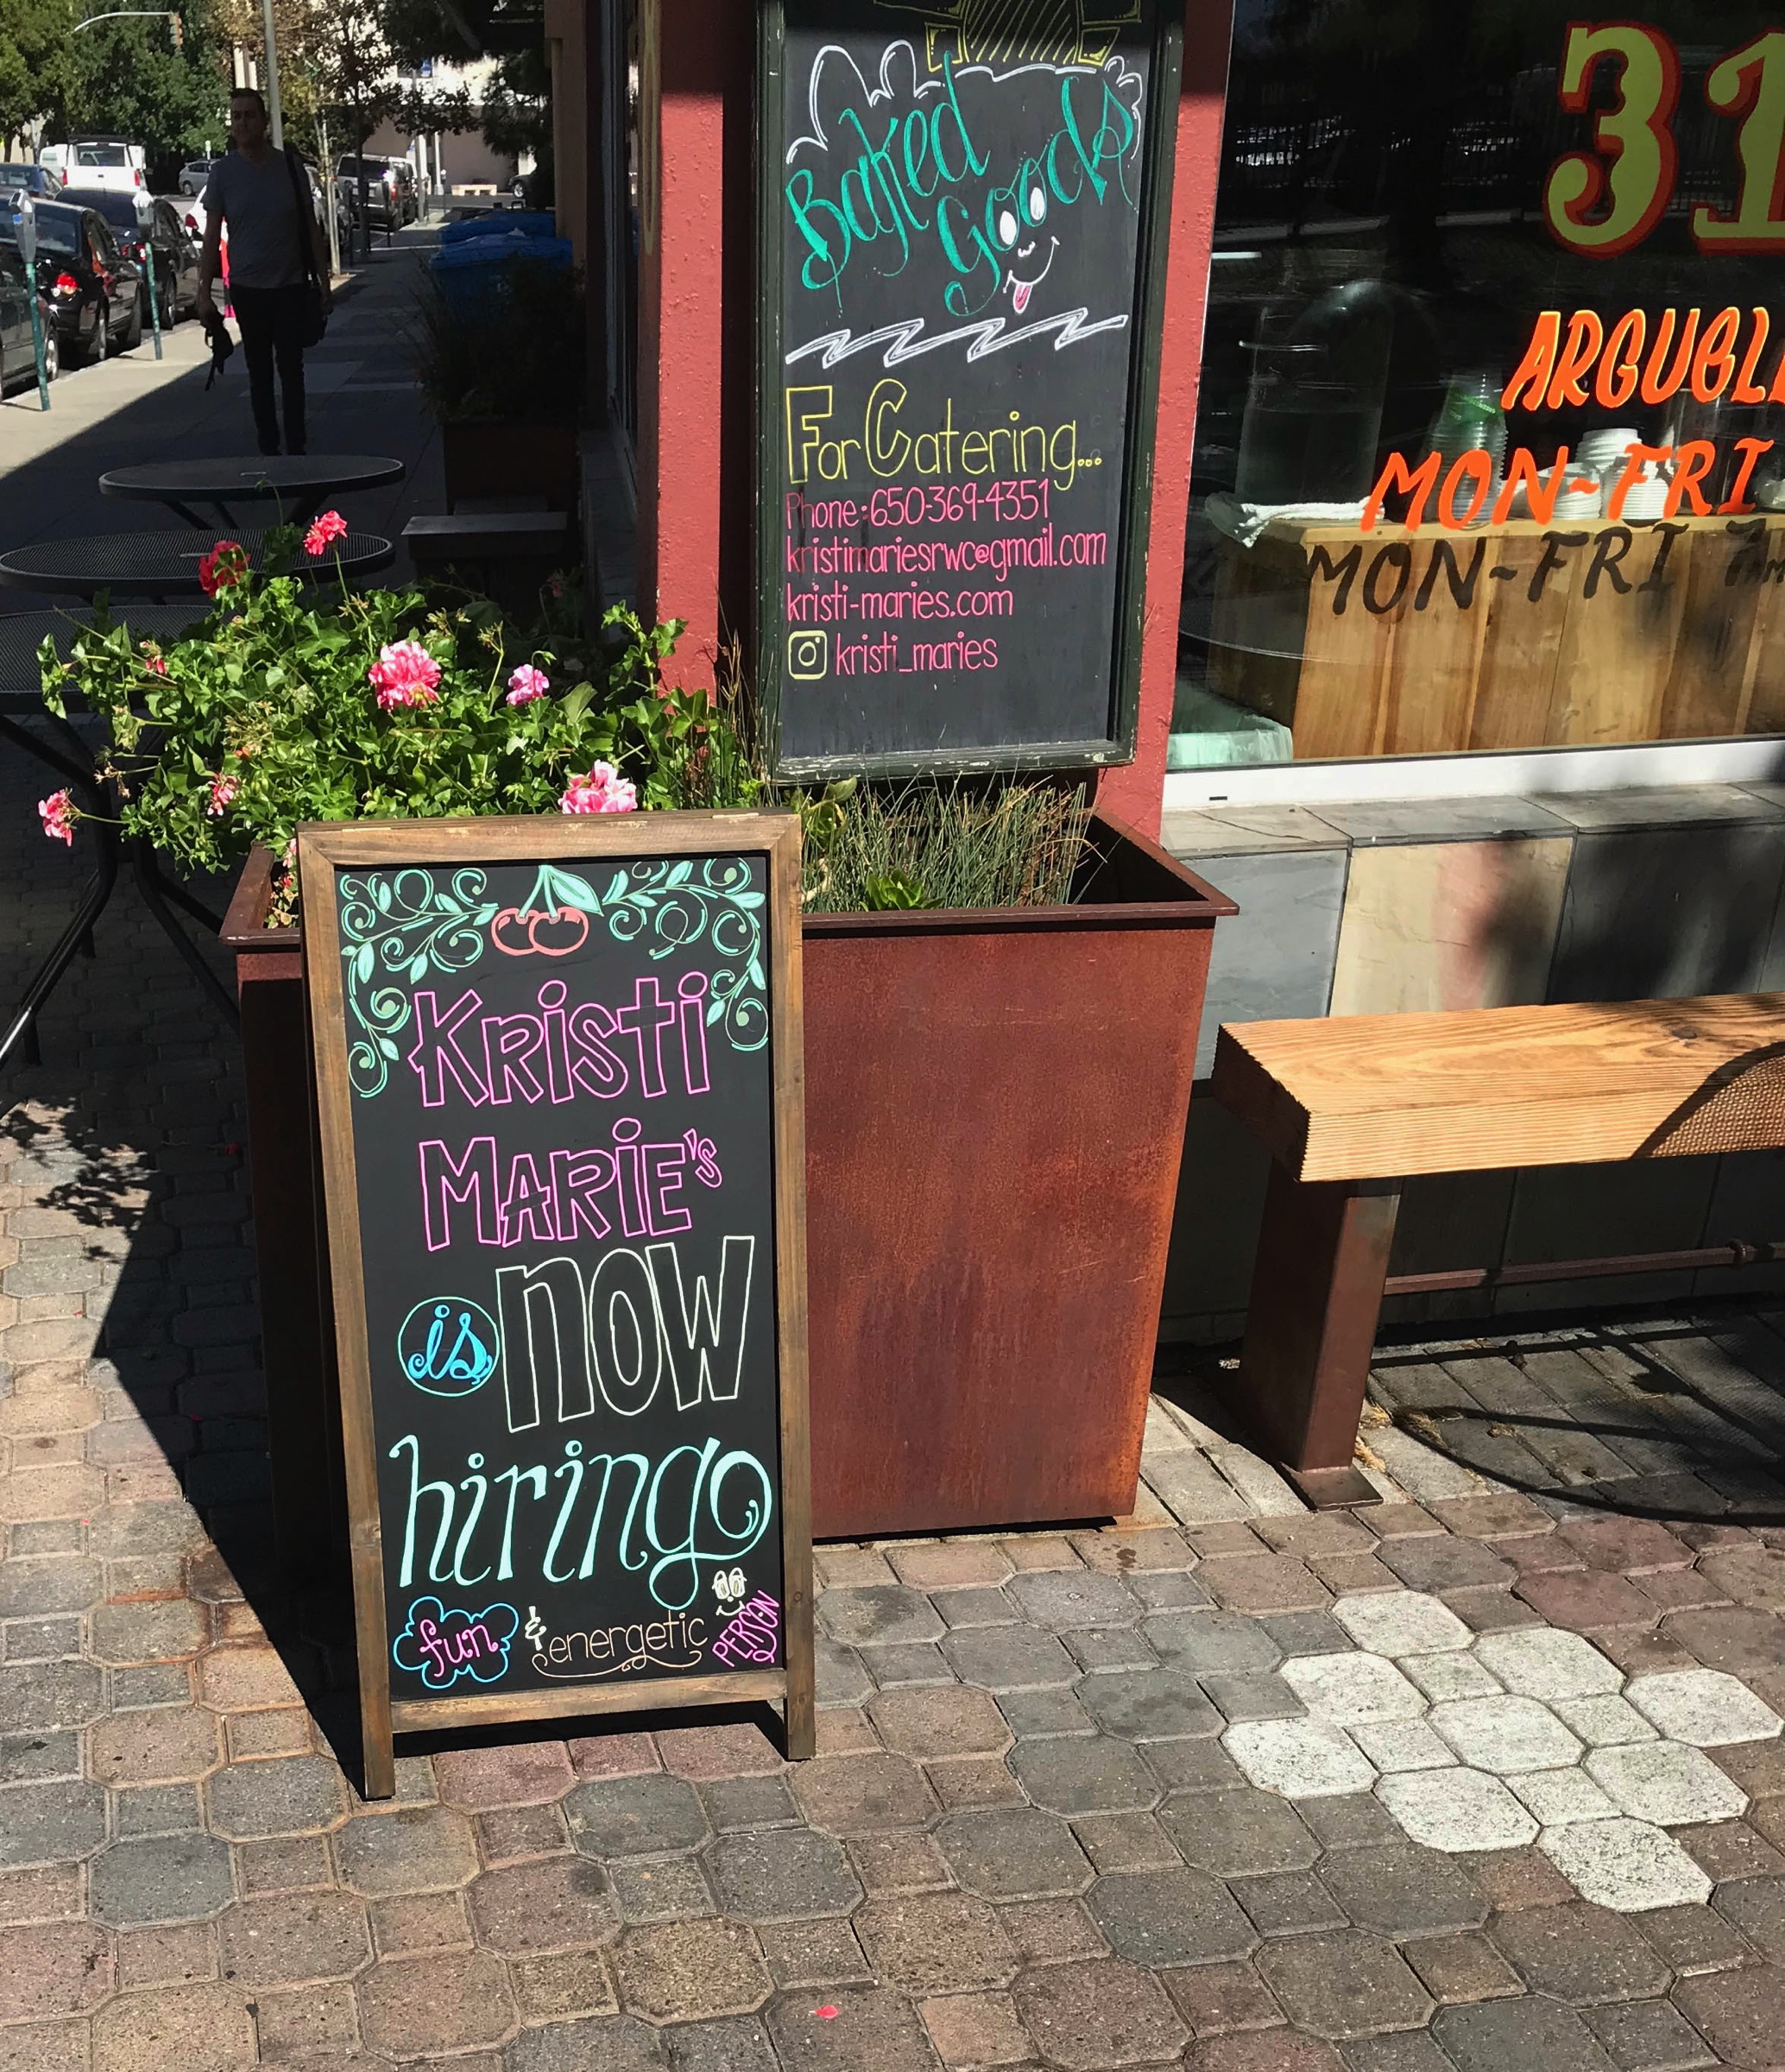 Baked
Goods
For Catering...
Phone: 650-369-4351
kristimariesrwc@gmail.com
kristi-maries.com
kristi_maries
31
MON-FRI
MON-FRI
KRiSTi
MARiE's
is NOW
hiring
fun & energetic PERSON